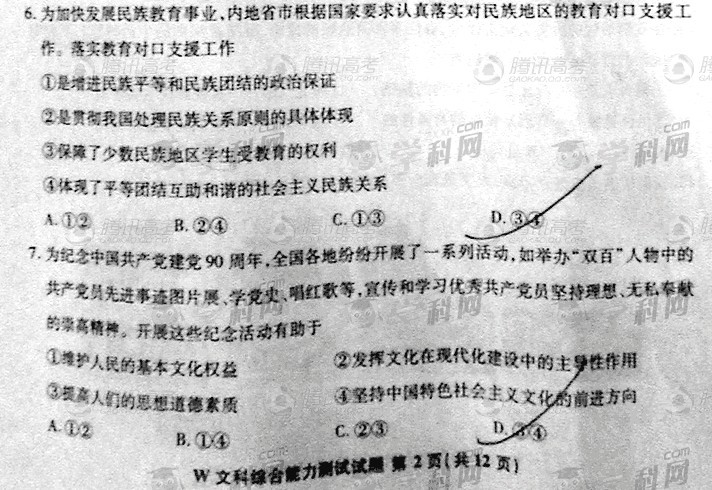 6. 为加快发展民族教育事业,内地省市根据国家要求认真落实对民族地区的教育对口支援工
作。落实教育对口支援工作
①是增进民族平等和民族团结的政治保证
②是贯彻我国处理民族关系原则的具体体现
③保障了少数民族地区学生受教育的权利
④体现了平等团结互助和谐的社会主义民族关系
A.①② B.②④ C.①③ D.③④
7. 为纪念中国共产党建党90周年,全国各地纷纷开展了一系列活动,如举办“双百”人物中的
共产党员先进事迹图片展、学党史、唱红歌等,宣传和学习优秀共产党员坚持理想、无私奉献
的崇高精神。开展这些纪念活动有助于
①维护人民的基本文化权益 ②发挥文化在现代化建设中的主导性作用
③提高人们的思想道德素质 ④坚持中国特色社会主义文化的前进方向
A.①② B.①④ C.②③ D.③④
W 文科综合能力测试试题 第2页(共12页)